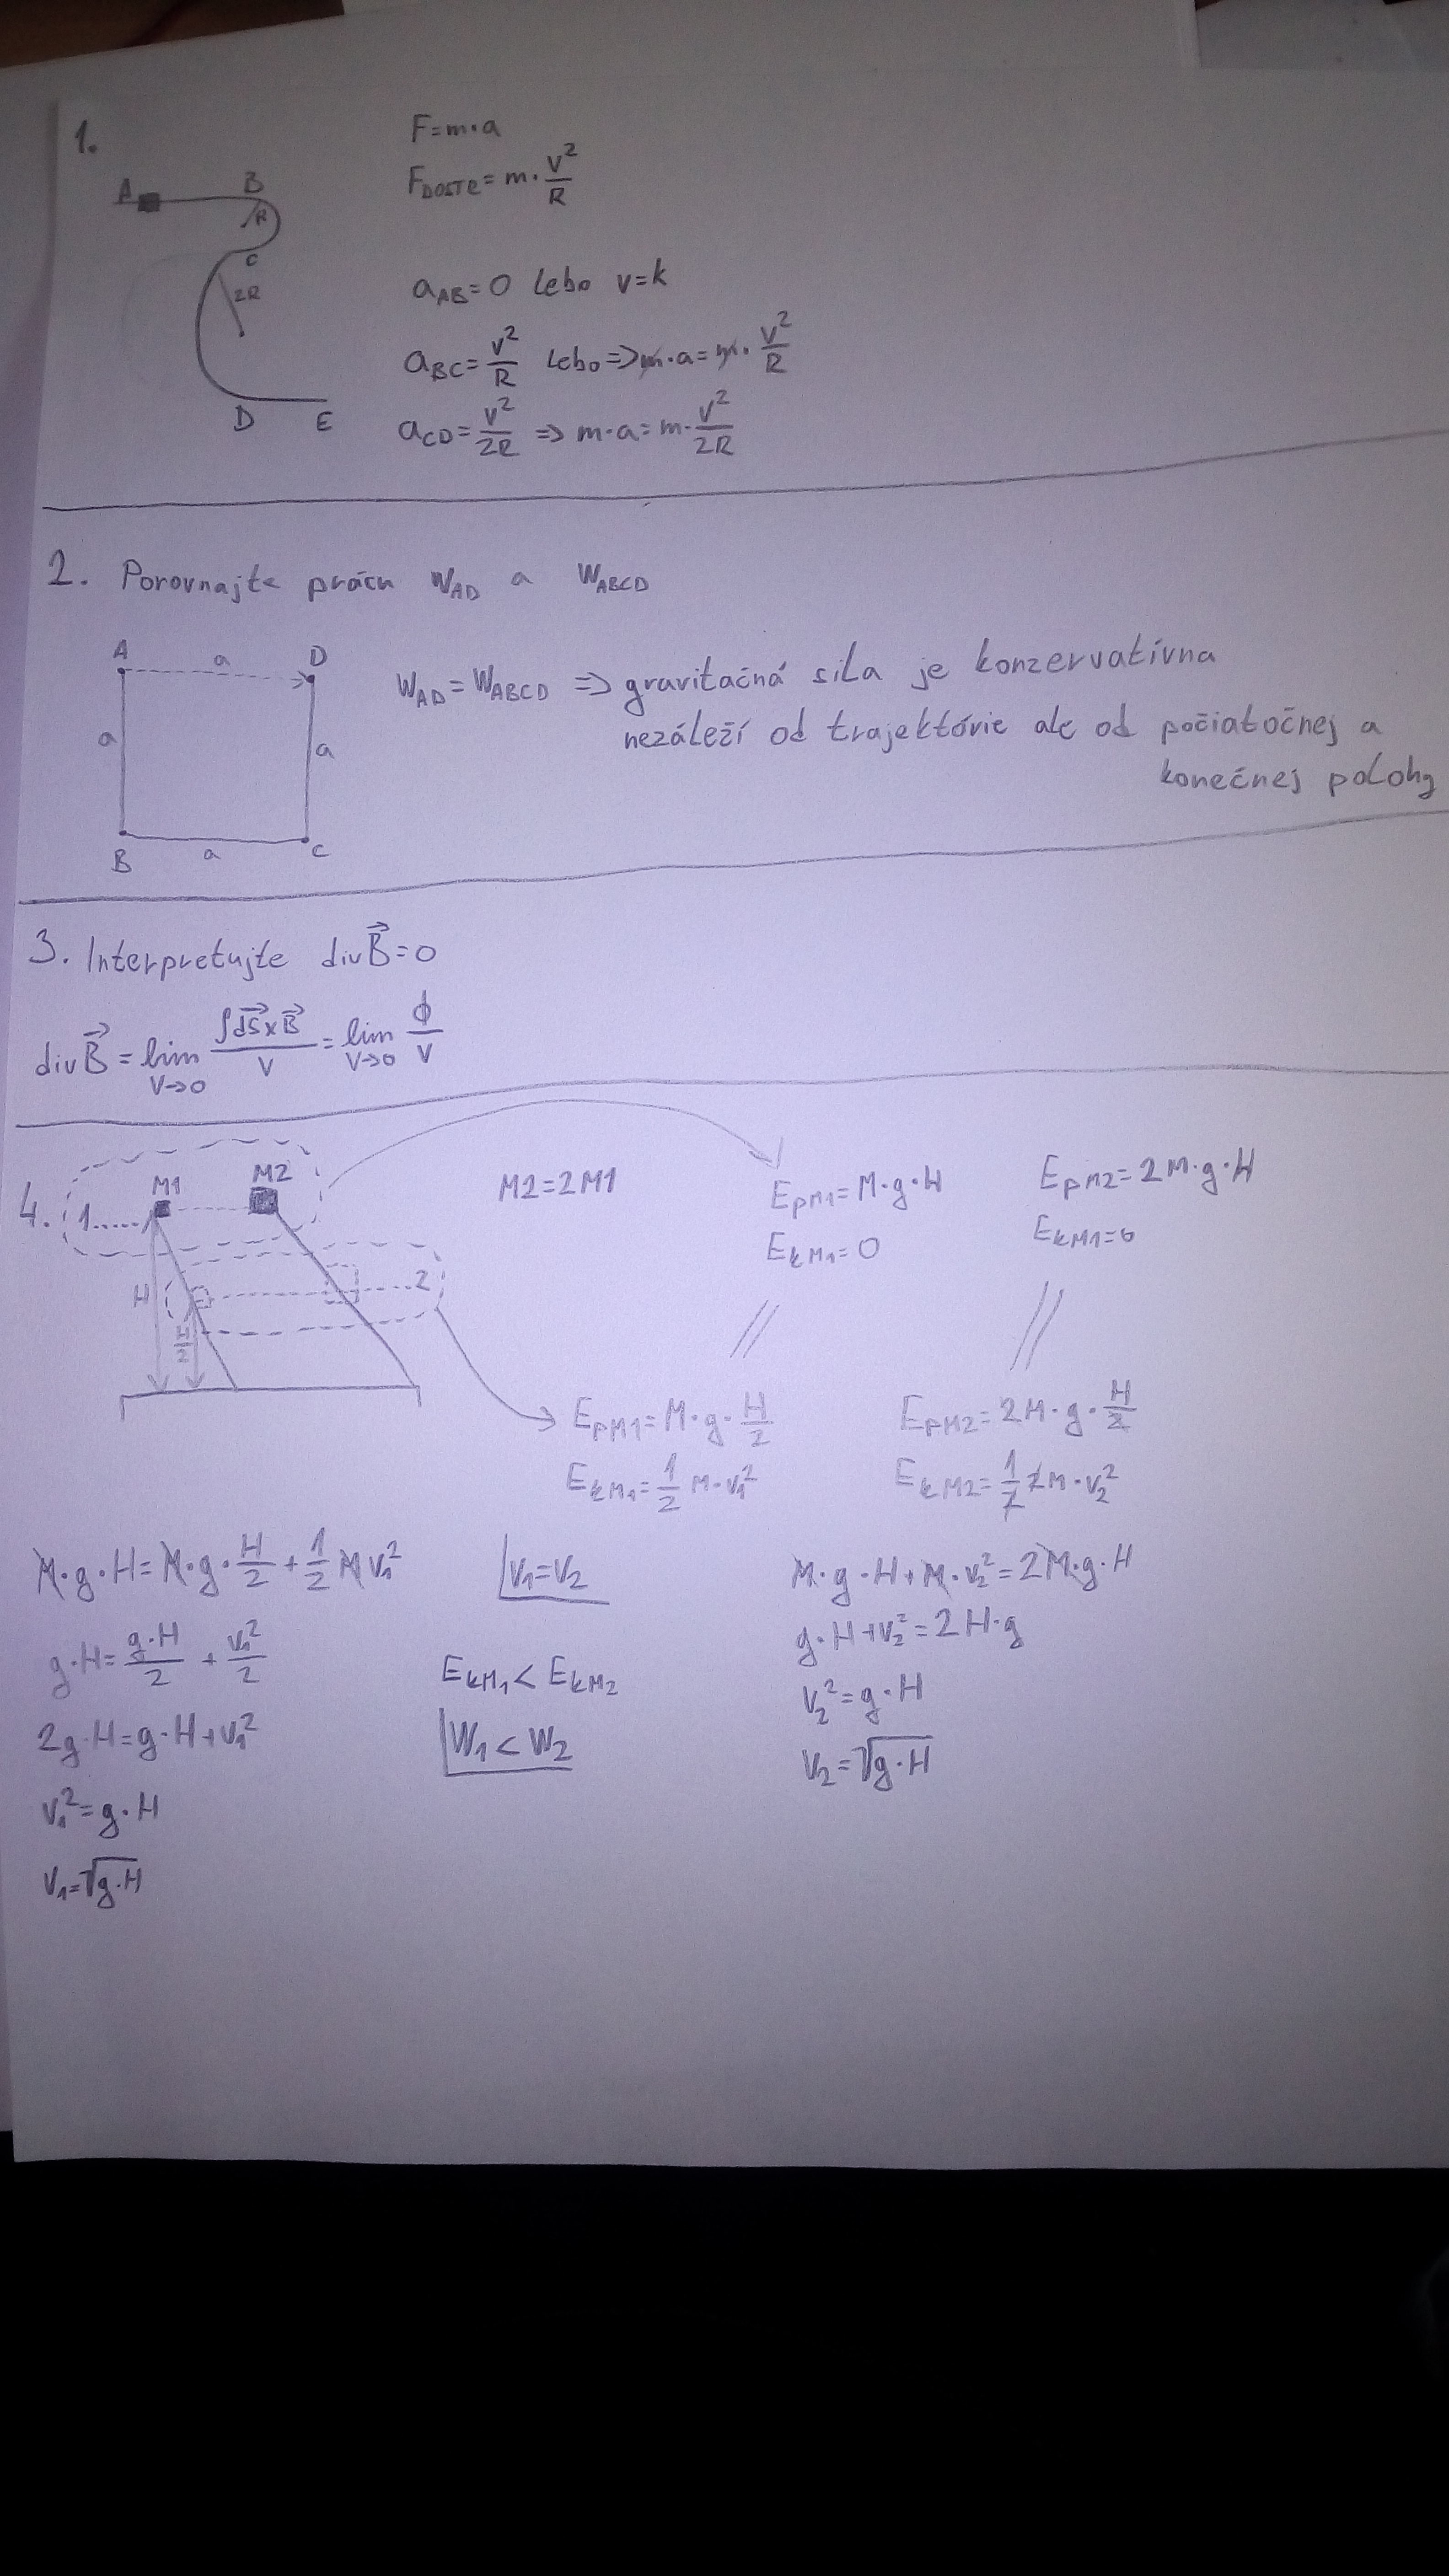 1.
F=m·a
F_DOSTR=m·V²/R
A B R C 2R D E
a_AB=0 lebo v=k
a_BC=V²/R lebo => m·a=m·V²/R
a_CD=V²/2R => m·a=m·V²/2R
2. Porovnajte prácu W_AD a W_ABCD
A a D
a a
B a C
W_AD=W_ABCD => gravitačná sila je konzervatívna
nezáleží od trajektórie ale od počiatočnej a
konečnej polohy
3. Interpretujte div B⃗=0
div B⃗ = lim V→0 ∫dS⃗×B⃗/V = lim V→0 ϕ/V
4.
M1 M2
1.....
H
H/2
...2
M2=2M1
E_PM1=M·g·H
E_kM1=0
E_PM2=2M·g·H
E_kM1=0
E_PM1=M·g·H/2
E_kM1=1/2 M·v₁²
E_PM2=2M·g·H/2
E_kM2=1/2 2M·v₂²
M·g·H=M·g·H/2+1/2 M v₁²
g·H=g·H/2+v₁²/2
2g·H=g·H+v₁²
v₁²=g·H
v₁=√g·H
v₁=v₂
E_kM1<E_kM2
W₁<W₂
M·g·H+M·v₂²=2M·g·H
g·H+v₂²=2H·g
v₂²=g·H
v₂=√g·H